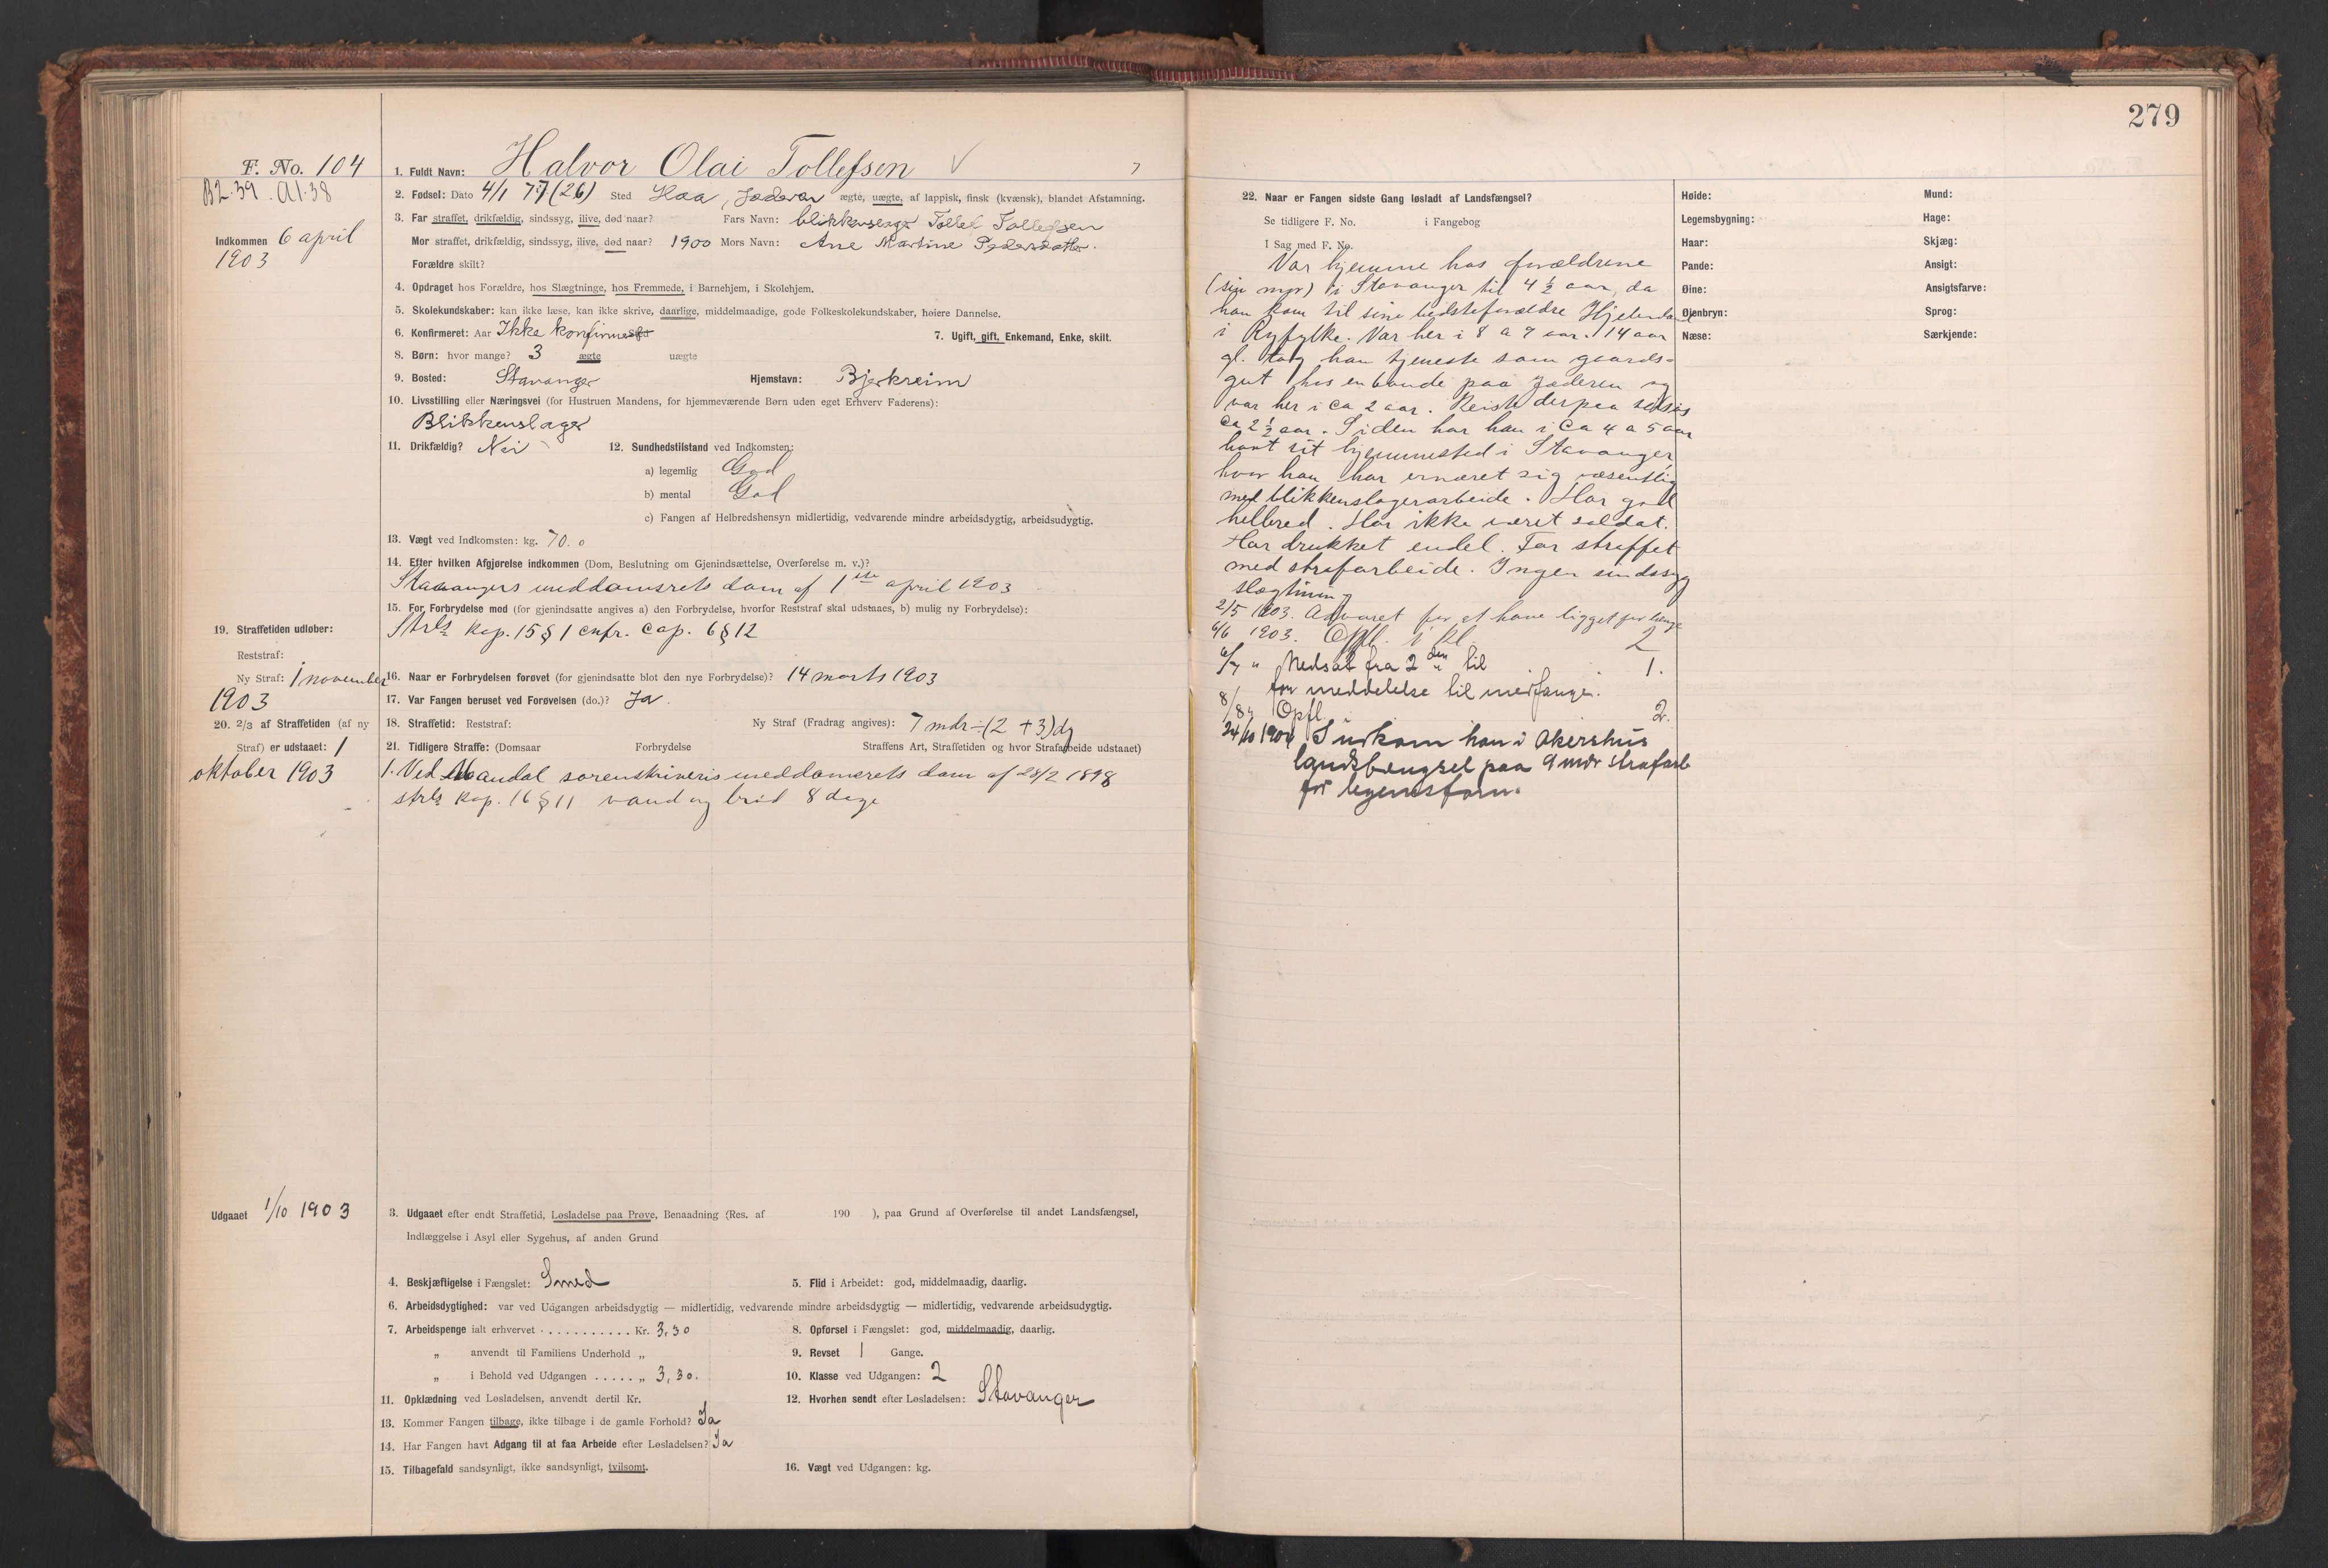 279
F. No. 104
B2.39. A1.38
Indkommen 6 april
1903
1. Fuldt Navn: Halvor Olai Tollefsen
2. Fødsel: Dato 4/1 77 (26) Sted Haa, Jæderen ægte, uægte, af lappisk, finsk (kvænsk), blandet Afstamning.
3. Far straffet, drikfældig, sindssyg, ilive, død naar? Fars Navn: blikkenslager Tollef Tollefsen
Mor straffet, drikfældig, sindssyg, ilive, død naar? 1900 Mors Navn: Ane Martine Pedersdatter.
Forældre skilt?
4. Opdraget hos Forældre, hos Slægtninge, hos Fremmede, i Barnehjem, i Skolehjem.
5. Skolekundskaber: kan ikke læse, kan ikke skrive, daarlige, middelmaadige, gode Folkeskolekundskaber, høiere Dannelse.
6. Konfirmeret: Aar Ikke konfirmeret 7. Ugift, gift, Enkemand, Enke, skilt.
8. Børn: hvor mange? 3 ægte uægte
9. Bosted: Stavanger Hjemstavn: Bjerkreim
10. Livsstilling eller Næringsvei (for Hustruen Mandens, for hjemmeværende Børn uden eget Erhverv Faderens):
Blikkenslager
11. Drikfældig? Nei 12. Sundhedstilstand ved Indkomsten:
a) legemlig God
b) mental God
c) Fangen af Helbredshensyn midlertidig, vedvarende mindre arbeidsdygtig, arbeidsudygtig.
13. Vægt ved Indkomsten: kg. 70.0
14. Efter hvilken Afgjørelse indkommen (Dom, Beslutning om Gjenindsættelse, Overførelse m. v.)?
Stavangers meddomsrets dom af 1ste april 1903
15. For Forbrydelse mod (for gjenindsatte angives a) den Forbrydelse, hvorfor Reststraf skal udstaaes, b) mulig ny Forbrydelse):
Strl Kap. 15 § 1 cnfr. cap. 6 § 12
19. Straffetiden udløber:
Reststraf:
Ny Straf: 1 november
1903
16. Naar er Forbrydelsen forøvet (for gjenindsatte blot den nye Forbrydelse)? 14 marts 1903
17. Var Fangen beruset ved Forøvelsen (do.)? Ja
18. Straffetid: Reststraf: Ny Straf (Fradrag angives): 7 mdr ÷ (2 + 3) dg
20. 2/3 af Straffetiden (af ny
Straf) er udstaaet: 1
oktober 1903
21. Tidligere Straffe: (Domsaar Forbrydelse Straffens Art, Straffetiden og hvor Strafarbeide udstaaet)
1. Ved Mandal sorenskriveris meddomsrets dom af 28/2 1898
strl Kap. 16 § 11 vand og brød 8 dage
Udgaaet 1/10 1903
3. Udgaaet efter endt Straffetid, Løsladelse paa Prøve, Benaadning (Res. af 190 ), paa Grund af Overførelse til andet Landsfængsel,
Indlæggelse i Asyl eller Sygehus, af anden Grund
4. Beskjæftigelse i Fængslet: Smed 5. Flid i Arbeidet: god, middelmaadig, daarlig.
6. Arbeidsdygtighed: var ved Udgangen arbeidsdygtig — midlertidig, vedvarende mindre arbeidsdygtig — midlertidig, vedvarende arbeidsudygtig.
7. Arbeidspenge ialt erhvervet . . . . . . . . . . . Kr. 3,30 8. Opførsel i Fængslet: god, middelmaadig, daarlig.
„ anvendt til Familiens Underhold „ 9. Revset 1 Gange.
„ i Behold ved Udgangen . . . . . „ 3,30. 10. Klasse ved Udgangen: 2
11. Opklædning ved Løsladelsen, anvendt dertil Kr. 12. Hvorhen sendt efter Løsladelsen: Stavanger
13. Kommer Fangen tilbage, ikke tilbage i de gamle Forhold? Ja
14. Har Fangen havt Adgang til at faa Arbeide efter Løsladelsen? Ja
15. Tilbagefald sandsynligt, ikke sandsynligt, tvilsomt. 16. Vægt ved Udgangen: kg.
22. Naar er Fangen sidste Gang løsladt af Landsfængsel?
Se tidligere F. No. i Fangebog
I Sag med F. No.
Var hjemme hos forældrene
(sin mor) i Stavanger til 4 1/2 aar, da
han kom til sine bedsteforældre Hjelmeland
i Ryfylke. Var her i 8 a 9 aar. 14 aar
gl. tog han tjeneste som gaards-
gut hos en bonde paa Jæderen og
var her i ca 2 aar. Reiste derpaa tilsjøs
ca 2 1/2 aar. Siden har han i ca 4 a 5 aar
havt sit hjemmested i Stavanger,
hvor han har ernæret sig væsentlig
med blikkenslagerarbeide. Har god
helbred. Har ikke været soldat.
Har drukket endel. Far straffet
med strafarbeide. Ingen sindssyg
slægtning
2/5 1903. Advaret for at have ligget for længe
6/6 1903. Opfl. i kl. 2
6/7 " Nedsat fra 2den til 1.
for meddelelse til medfange.
8/8 " Opfl. i 2.
24/10 1904 Indkom han i Akershus
landsfængsel paa 9 mdr strafarb
for legemsforn.
Høide:
Legemsbygning:
Haar:
Pande:
Øine:
Øienbryn:
Næse:
Mund:
Hage:
Skjæg:
Ansigt:
Ansigtsfarve:
Sprog:
Særkjende: